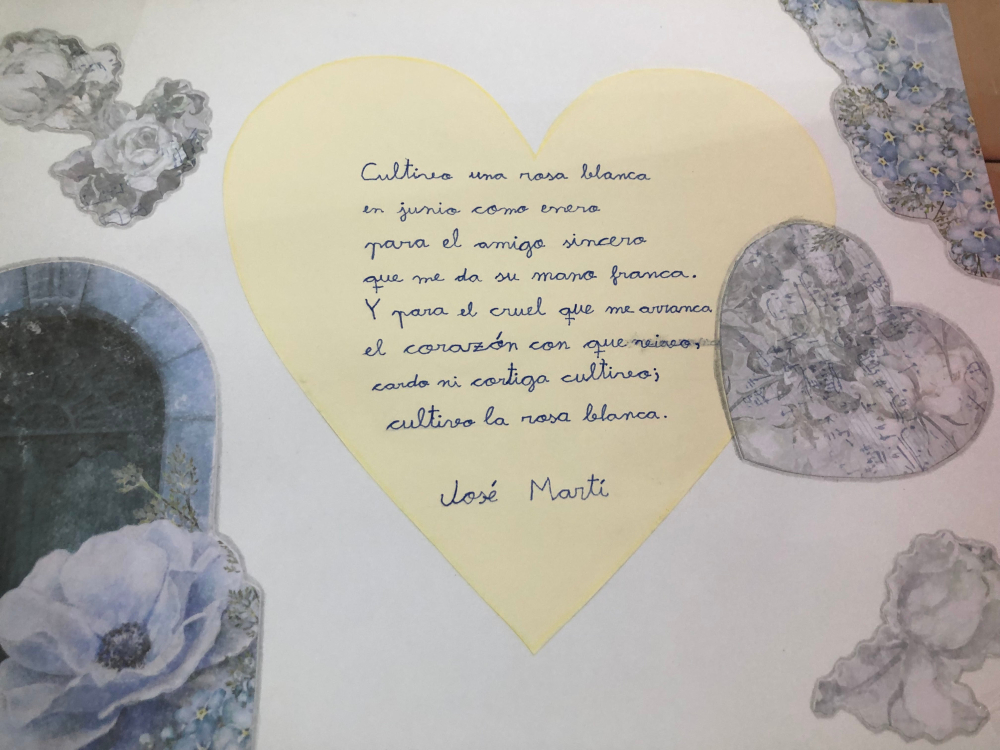 Cultivo una rosa blanca
en junio como enero
para el amigo sincero
que me da su mano franca.
Y para el cruel que me arranca
el corazón con que vivo,
cardo ni cortiga cultivo;
cultivo la rosa blanca.
José Martí